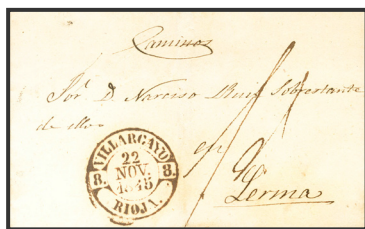 Caminos
Sor. D. Narciso Ruiz Sobrestante
de ellos
en
Lerma
VILLARCAYO
8. 22 8.
NOV.
1845
RIOJA.